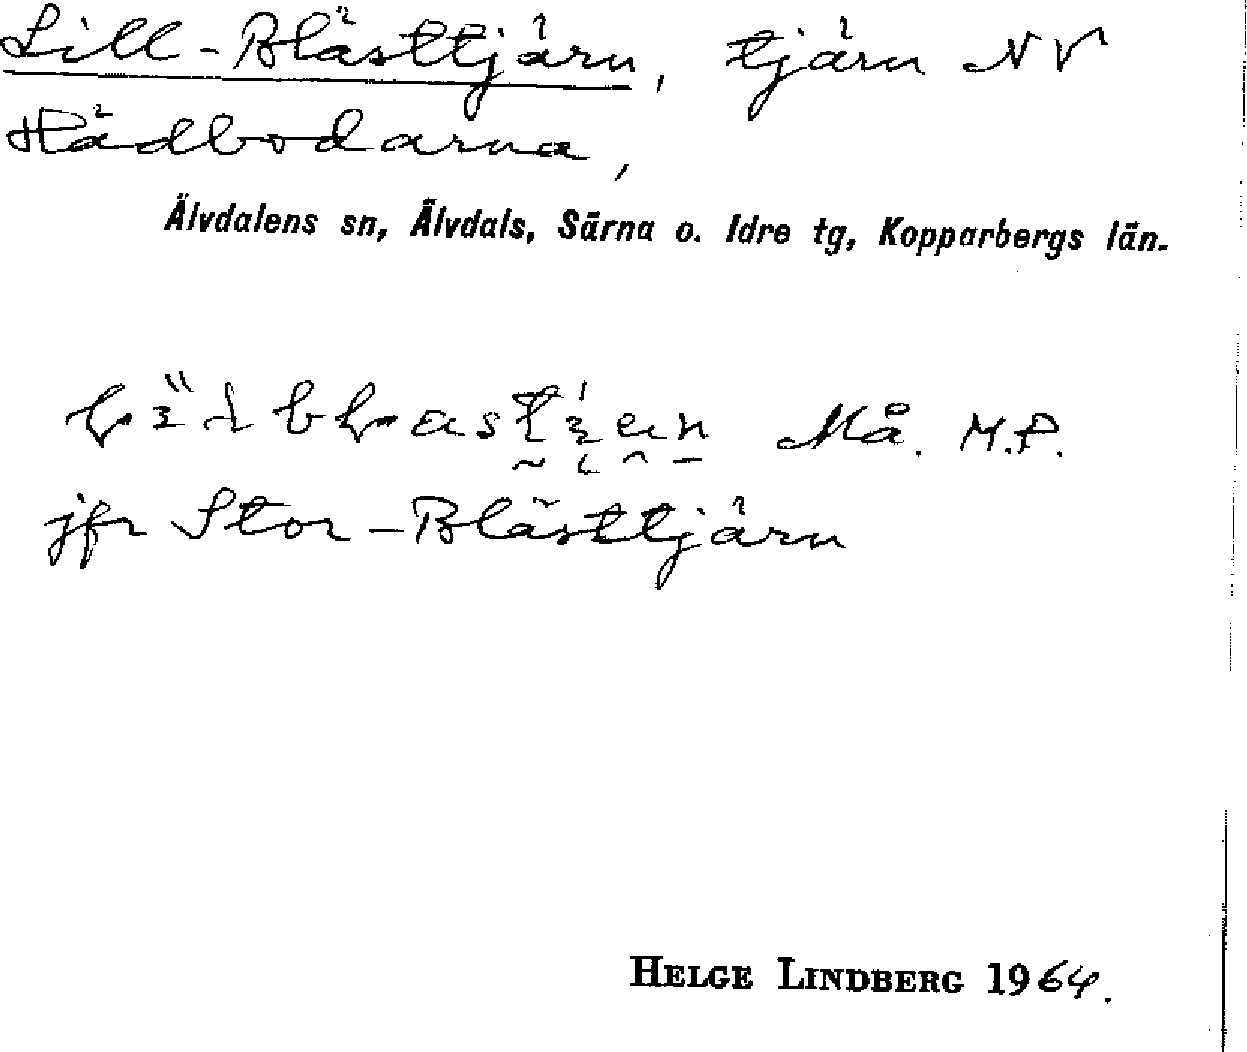 Lill-Blästtjärn, tjärn NV
Hädbodarna,
Älvdalens sn, Älvdals, Särna o. Idre tg, Kopparbergs län.
Må. M.P.
jfr Stor-Blästtjärn
HELGE LINDBERG 1964.